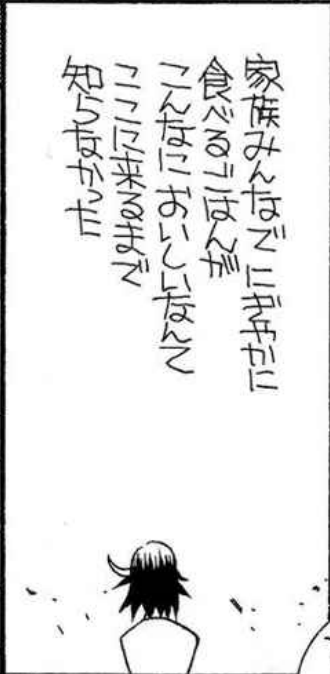 家族みんなでにぎやかに
食べるごはんが
こんなにおいしいなんて
ここに来るまで
知らなかった